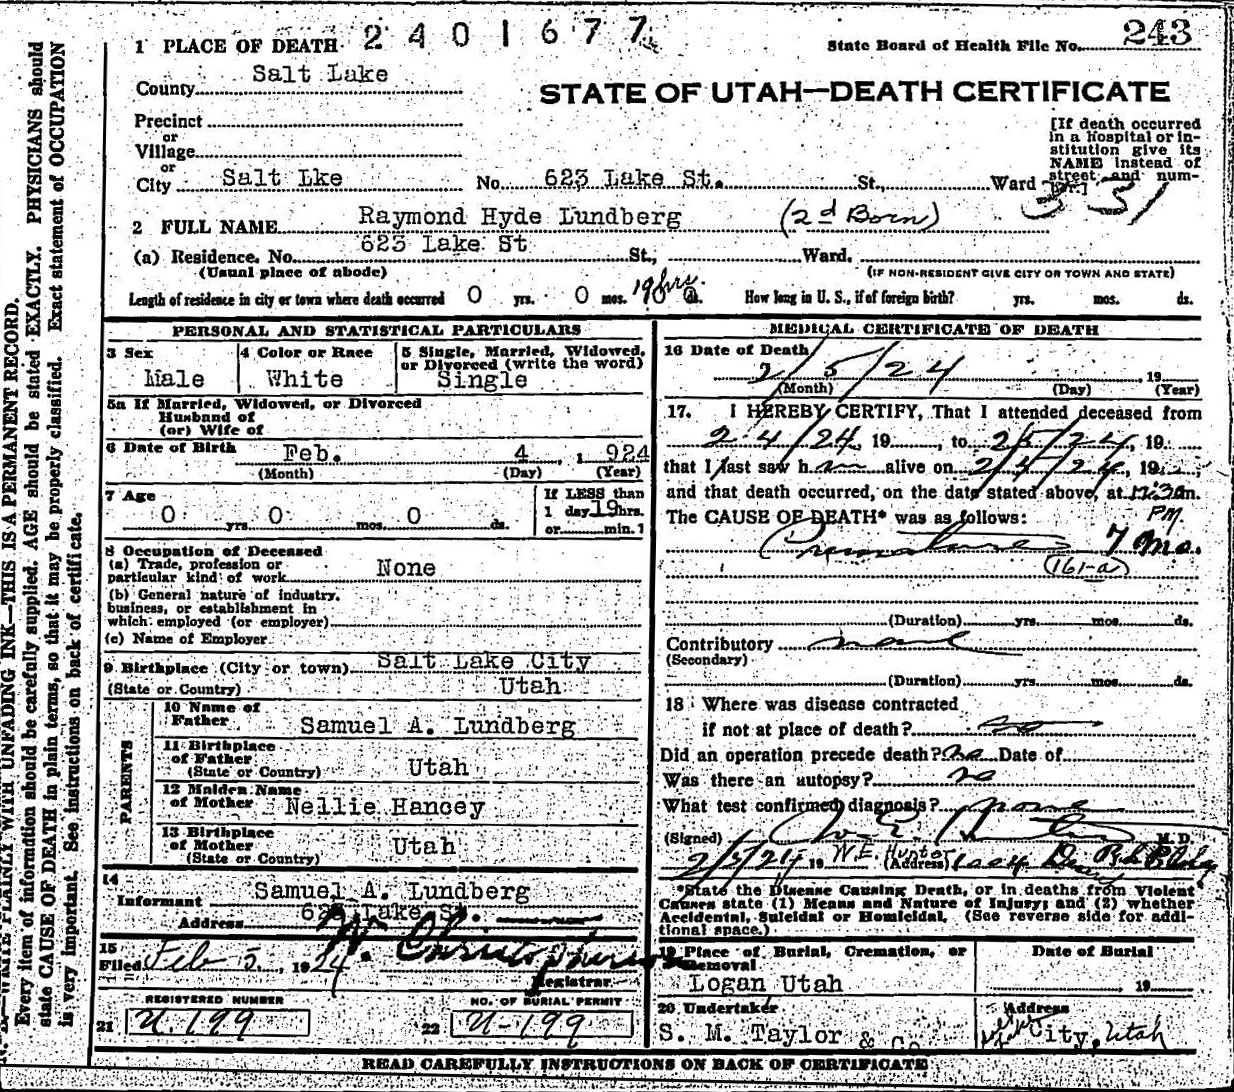 2401677
243
1 PLACE OF DEATH
State Board of Health File No.
County Salt Lake
STATE OF UTAH—DEATH CERTIFICATE
Precinct
or
Village
or
City Salt Lke No. 623 Lake St. St., Ward
[If death occurred
in a hospital or in-
stitution give its
NAME instead of
street and num-
ber.]
2 FULL NAME Raymond Hyde Lundberg (2d Born)
(a) Residence. No. 623 Lake St St., Ward.
(Usual place of abode) (IF NON-RESIDENT GIVE CITY OR TOWN AND STATE)
Length of residence in city or town where death occurred 0 yrs. 0 mos. 19 hrs. ds. How long in U. S., if of foreign birth? yrs. mos. ds.
PERSONAL AND STATISTICAL PARTICULARS
3 Sex Male
4 Color or Race White
5 Single, Married, Widowed,
or Divorced (write the word)
Single
5a If Married, Widowed, or Divorced
Husband of
(or) Wife of
6 Date of Birth Feb. 4, 1924
(Month) (Day) (Year)
7 Age
0 yrs. 0 mos. 0 ds.
If LESS than
1 day 19 hrs.
or min.
8 Occupation of Deceased
(a) Trade, profession or
particular kind of work None
(b) General nature of industry,
business, or establishment in
which employed (or employer)
(c) Name of Employer
9 Birthplace (City or town) Salt Lake City
(State or Country) Utah
PARENTS
10 Name of
Father Samuel A. Lundberg
11 Birthplace
of Father
(State or Country) Utah
12 Maiden Name
of Mother Nellie Hancey
13 Birthplace
of Mother
(State or Country) Utah
14
Informant Samuel A. Lundberg
Address 623 Lake St.
15
Filed Feb 5, 1924 Christopherson
Registrar
REGISTERED NUMBER
21 U.199
NO. OF BURIAL PERMIT
22 U-199
MEDICAL CERTIFICATE OF DEATH
16 Date of Death
2/5/24, 19
(Month) (Day) (Year)
17. I HEREBY CERTIFY, That I attended deceased from
2/4/24, 19 , to 2/5/24, 19
that I last saw h alive on 2/4/24, 19 ,
and that death occurred, on the date stated above, at m.
PM.
The CAUSE OF DEATH* was as follows:
Premature 7 Mo.
(161-a)
(Duration) yrs. mos. ds.
Contributory none
(Secondary)
(Duration) yrs. mos. ds.
18 Where was disease contracted
if not at place of death?
Did an operation precede death? no Date of
Was there an autopsy? no
What test confirmed diagnosis? none
(Signed) M. D.
2/5/24 19 W.E. Hunter (Address) 1004 Bldg
*State the Disease Causing Death, or in deaths from Violent
Causes state (1) Means and Nature of Injury; and (2) whether
Accidental, Suicidal or Homicidal. (See reverse side for addi-
tional space.)
19 Place of Burial, Cremation, or
Removal
Logan Utah
Date of Burial
19
20 Undertaker
S. M. Taylor & Co
Address
City, Utah
READ CAREFULLY INSTRUCTIONS ON BACK OF CERTIFICATE
WRITE PLAINLY WITH UNFADING INK—THIS IS A PERMANENT RECORD.
Every item of information should be carefully supplied. AGE should be stated EXACTLY. PHYSICIANS should
state CAUSE OF DEATH in plain terms, so that it may be properly classified. Exact statement of OCCUPATION
is very important. See instructions on back of certificate.